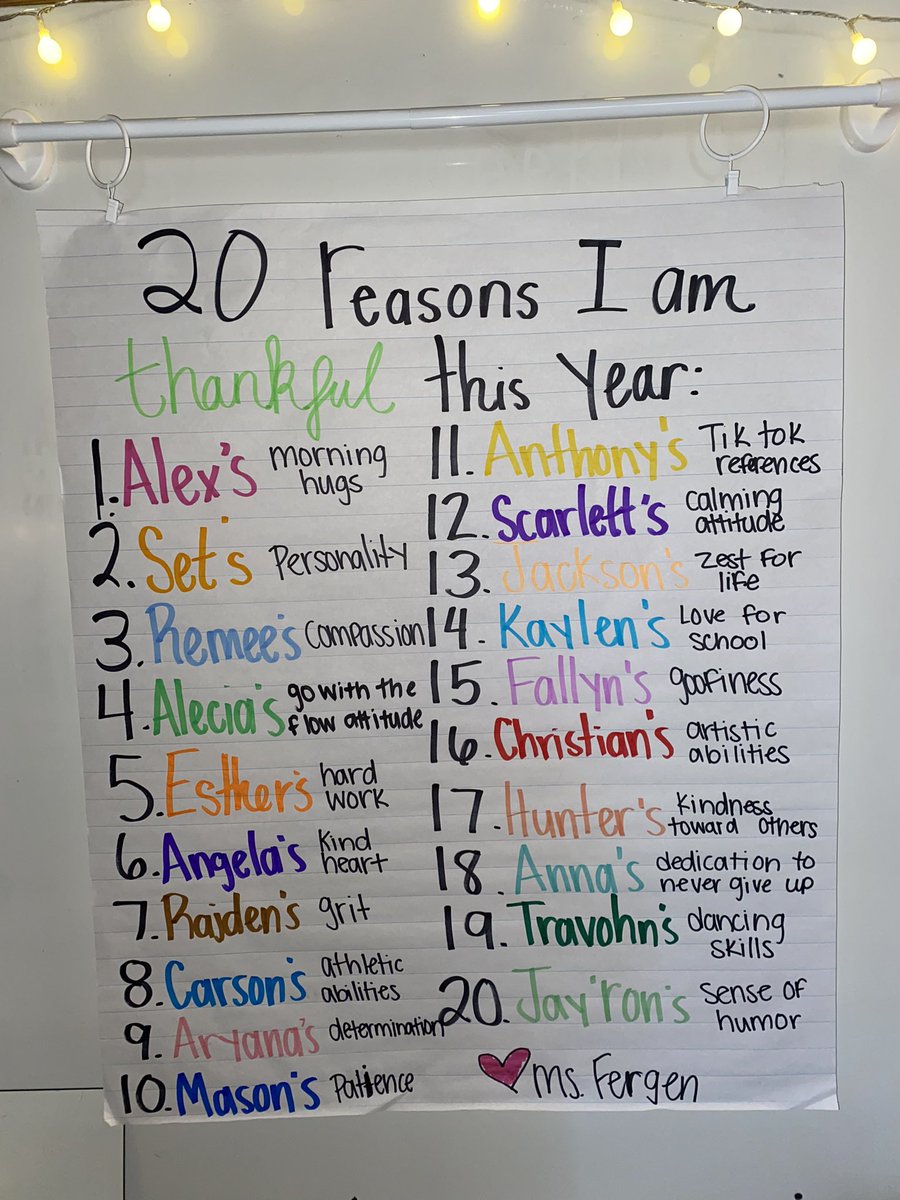 20 reasons I am
thankful this Year:
1. Alex's morning
hugs
2. Set's Personality
3. Remee's compassion
4. Alecia's go with the
flow attitude
5. Esther's hard
work
6. Angela's kind
heart
7. Raiden's grit
8. Carson's athletic
abilities
9. Aryana's determination
10. Mason's Patience
11. Anthony's Tik tok
references
12. Scarlett's calming
attitude
13. Jackson's zest for
life
14. Kaylen's Love for
school
15. Fallyn's goofiness
16. Christian's artistic
abilities
17. Hunter's kindness
toward others
18. Anna's dedication to
never give up
19. Travohn's dancing
skills
20. Jay'ron's sense of
humor
ms. Fergen